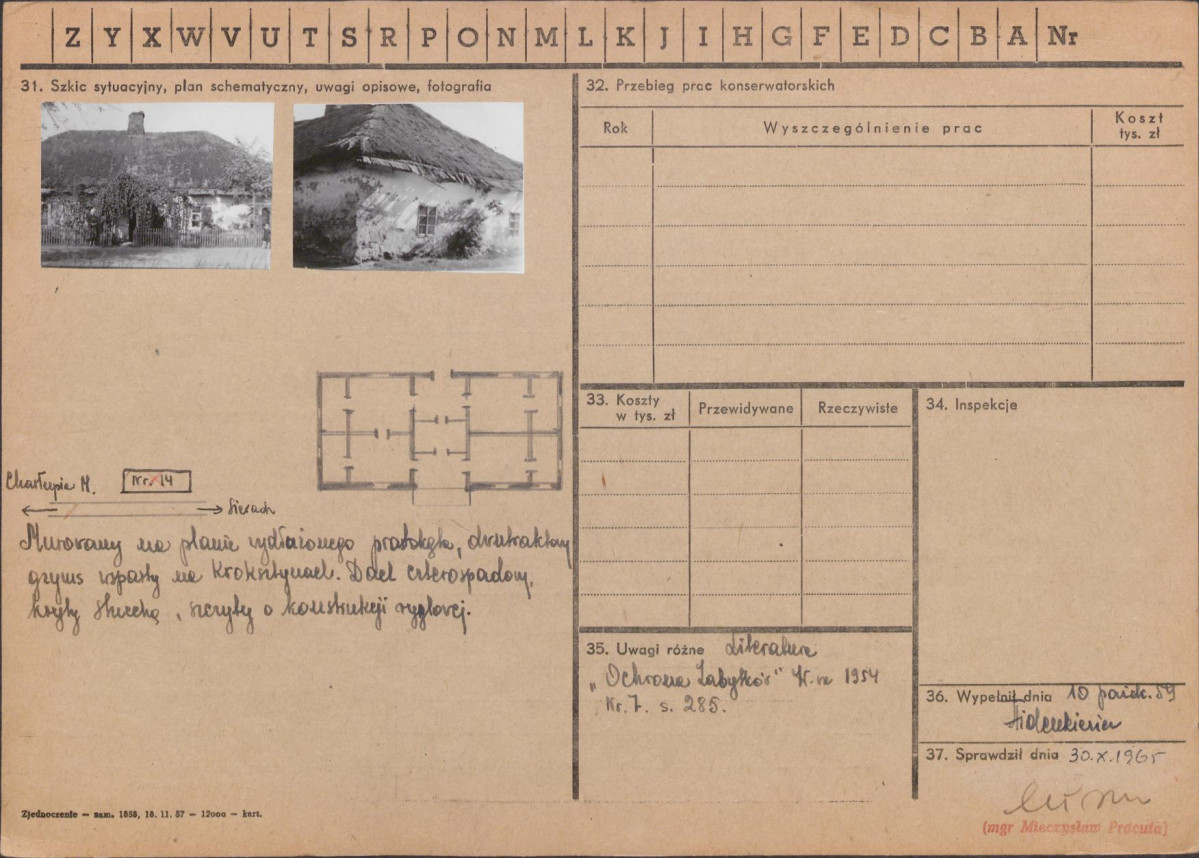 Z Y X W V U T S R P O N M L K J I H G F E D C B A Nr
31. Szkic sytuacyjny, plan schematyczny, uwagi opisowe, fotografia
Charłupia M.
Nr. 14
Sieradz
Murowany na planie wydłużonego prostokąta, dwutraktowy
gzyms wsparty na kroksztynach. Dach czterospadowy,
kryty strzechą, szczyty o konstrukcji ryglowej.
Zjednoczenie — zam. 1858, 18. 11. 57 — 12000 — kart.
32. Przebieg prac konserwatorskich
Rok
Wyszczególnienie prac
Koszt
tys. zł
33. Koszty
w tys. zł
Przewidywane
Rzeczywiste
34. Inspekcje
35. Uwagi różne Literatura
„Ochrona Zabytków" 1954
Nr. 7. s. 285.
36. Wypełnił dnia 10 paźdz. 59
37. Sprawdził dnia 30.X.1965
(mgr Mieczysław Pracuta)